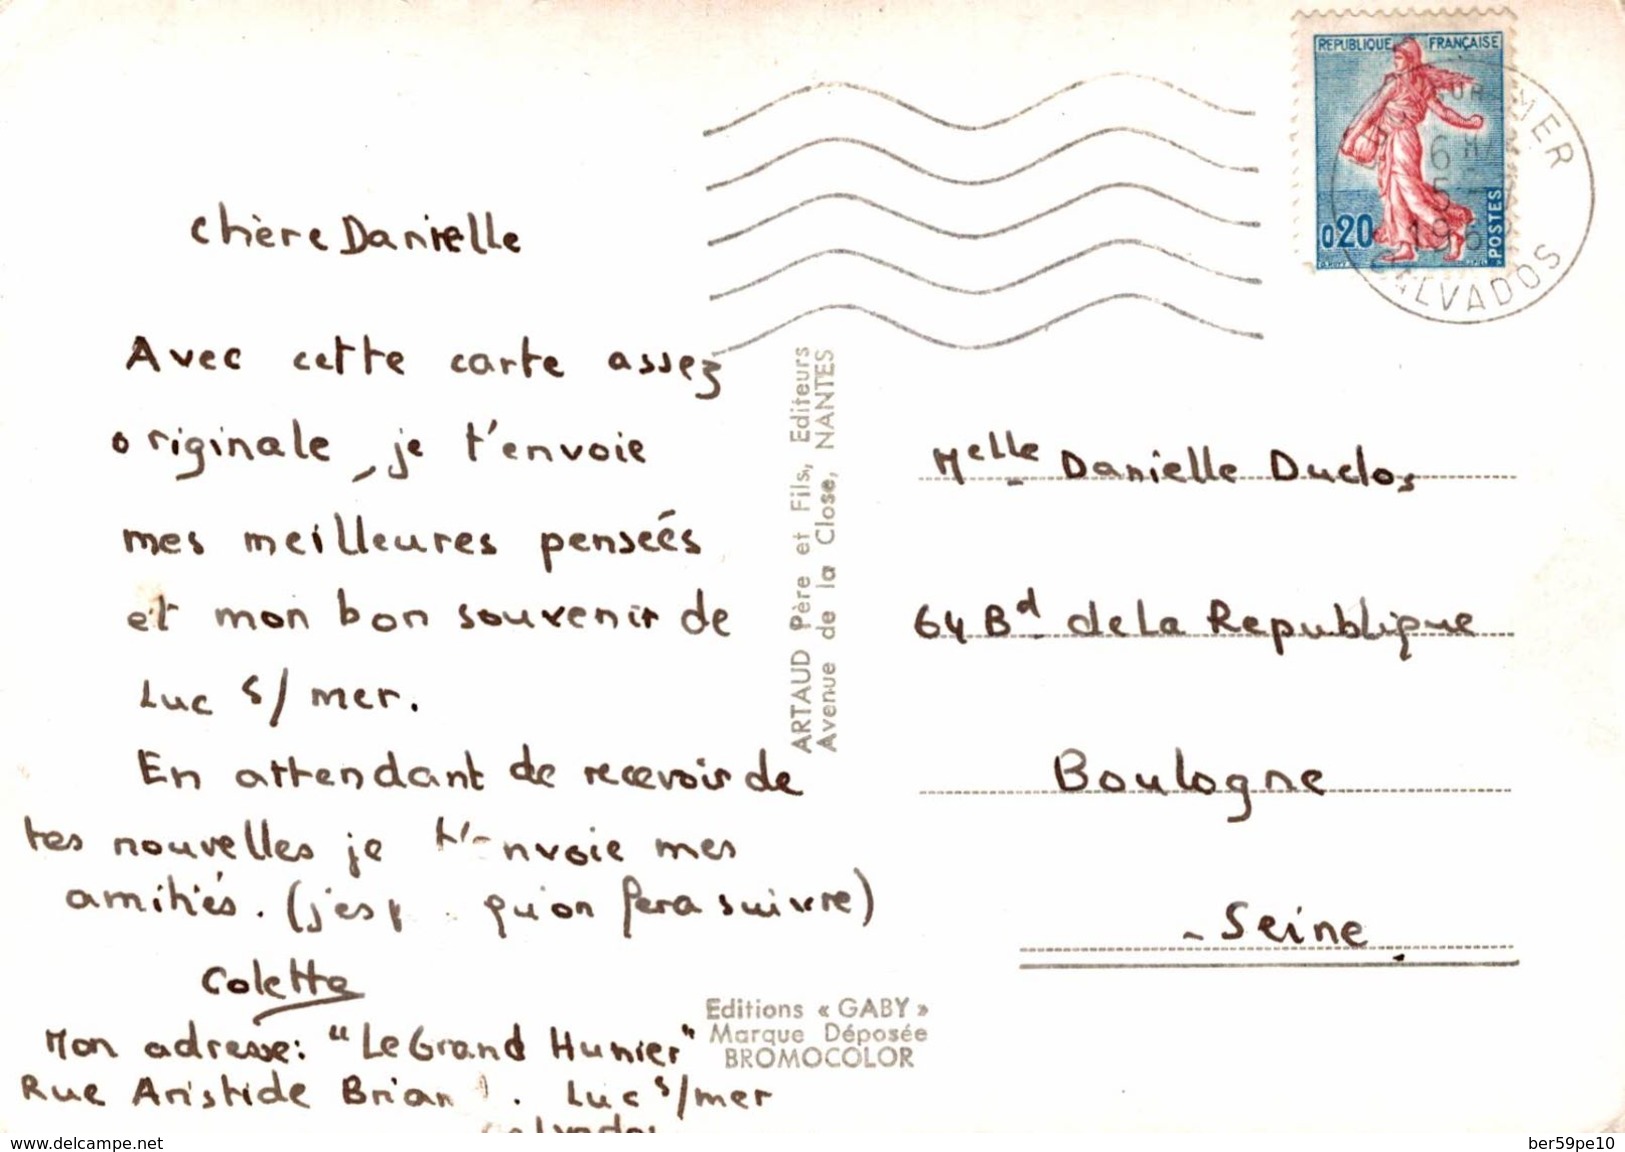 chère Danielle
Avec cette carte assez
originale, je t'envoie
mes meilleures pensées
et mon bon souvenir de
Luc s/ mer.
En attendant de recevoir de
tes nouvelles je t'envoie mes
amitiés. (j'esp qu'on fera suivre)
Colette
Mon adresse: "Le Grand Hunier"
Rue Aristide Brian . Luc s/mer
Calvados
ARTAUD Père et Fils, Editeurs
Avenue de la Close, NANTES
Editions « GABY »
Marque Déposée
BROMOCOLOR
REPUBLIQUE FRANÇAISE
0,20
POSTES
SUR MER
6H
5
196
CALVADOS
Melle Danielle Duclos
64 Bd de La Republique
Boulogne
- Seine
www.delcampe.net
ber59pe10